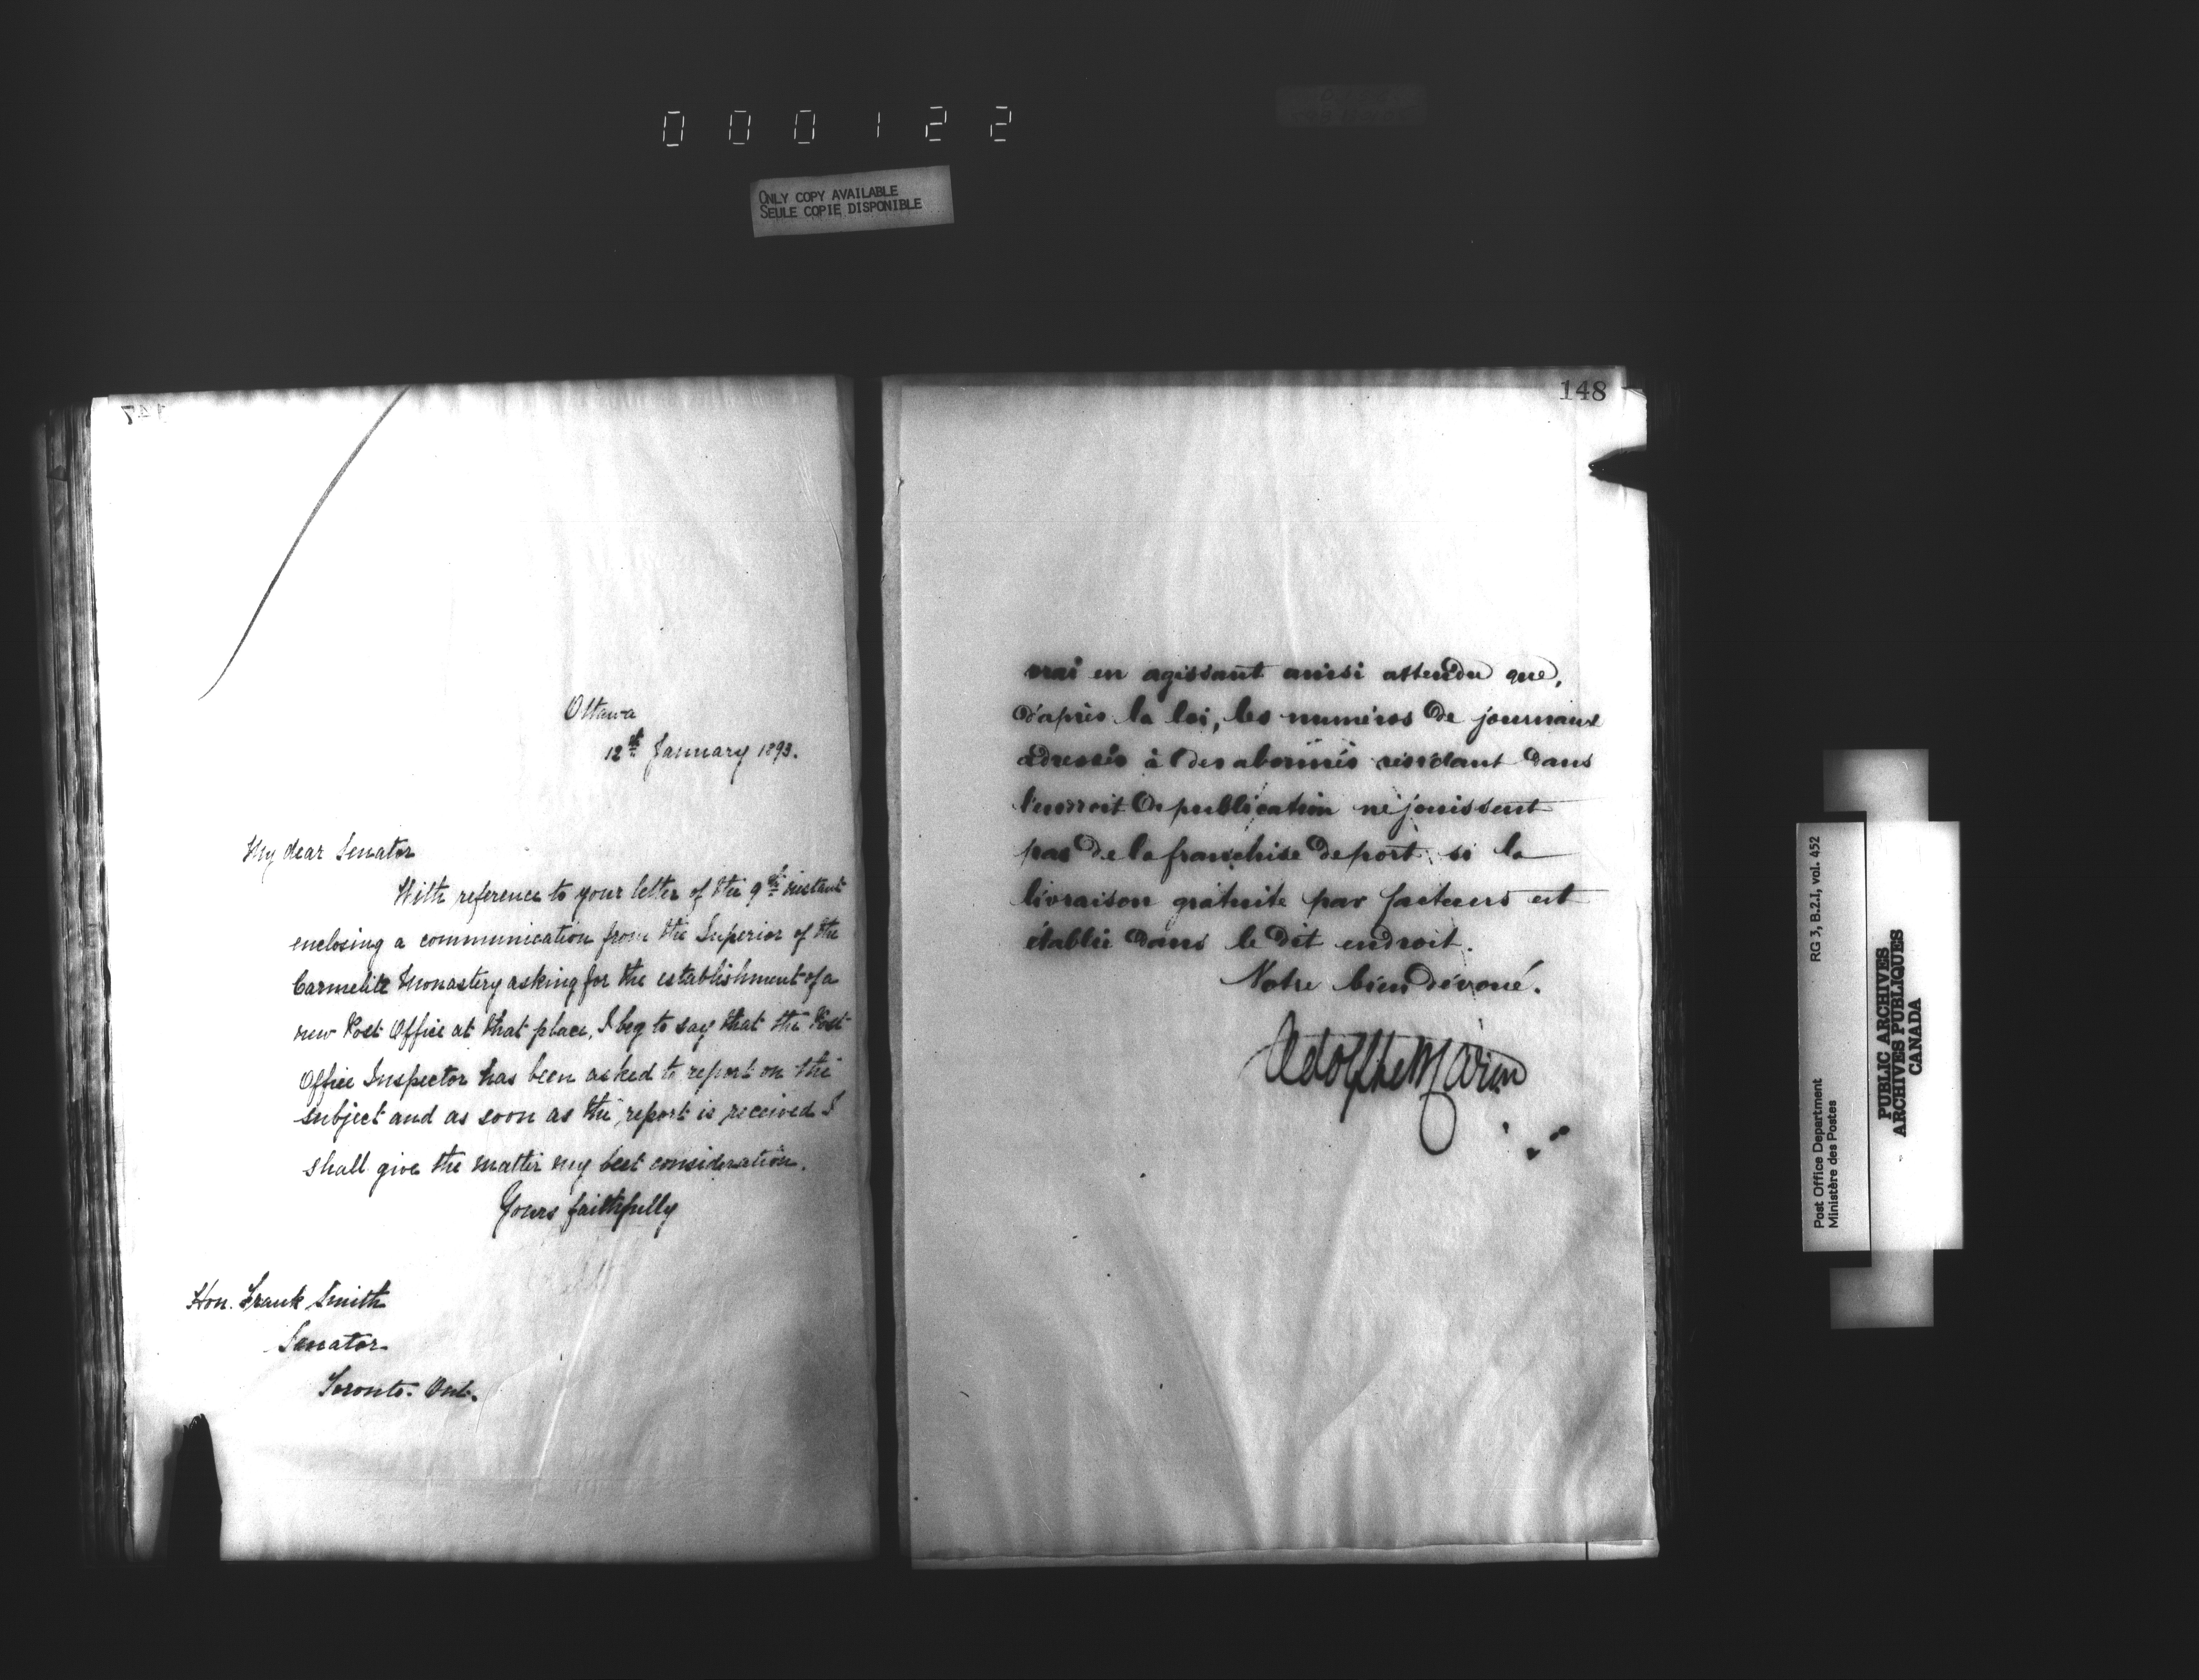 000122
ONLY COPY AVAILABLE
SEULE COPIE DISPONIBLE
Ottawa
12th January 1893.
My dear Senator
With reference to your letter of the 9th instant
enclosing a communication from the Superior of the
Carmelite Monastery asking for the establishment of a
new Post Office at that place, I beg to say that the Post
Office Inspector has been asked to report on the
subject and as soon as the report is received I
shall give the matter my best consideration.
Yours faithfully
Hon. Frank Smith
Senator
Toronto. Ont.
148
vrai en agissant ainsi attendu que,
d'après la loi, les numéros de journaux
adressés à des abonnés résidant dans
l'endroit de publication ne jouissent
pas de la franchise de port si la
livraison gratuite par facteurs est
établie dans le dit endroit.
Votre bien dévoué.
Adolphe Caron
RG 3, B.2.I, vol. 452
Post Office Department
Ministère des Postes
PUBLIC ARCHIVES
ARCHIVES PUBLIQUES
CANADA